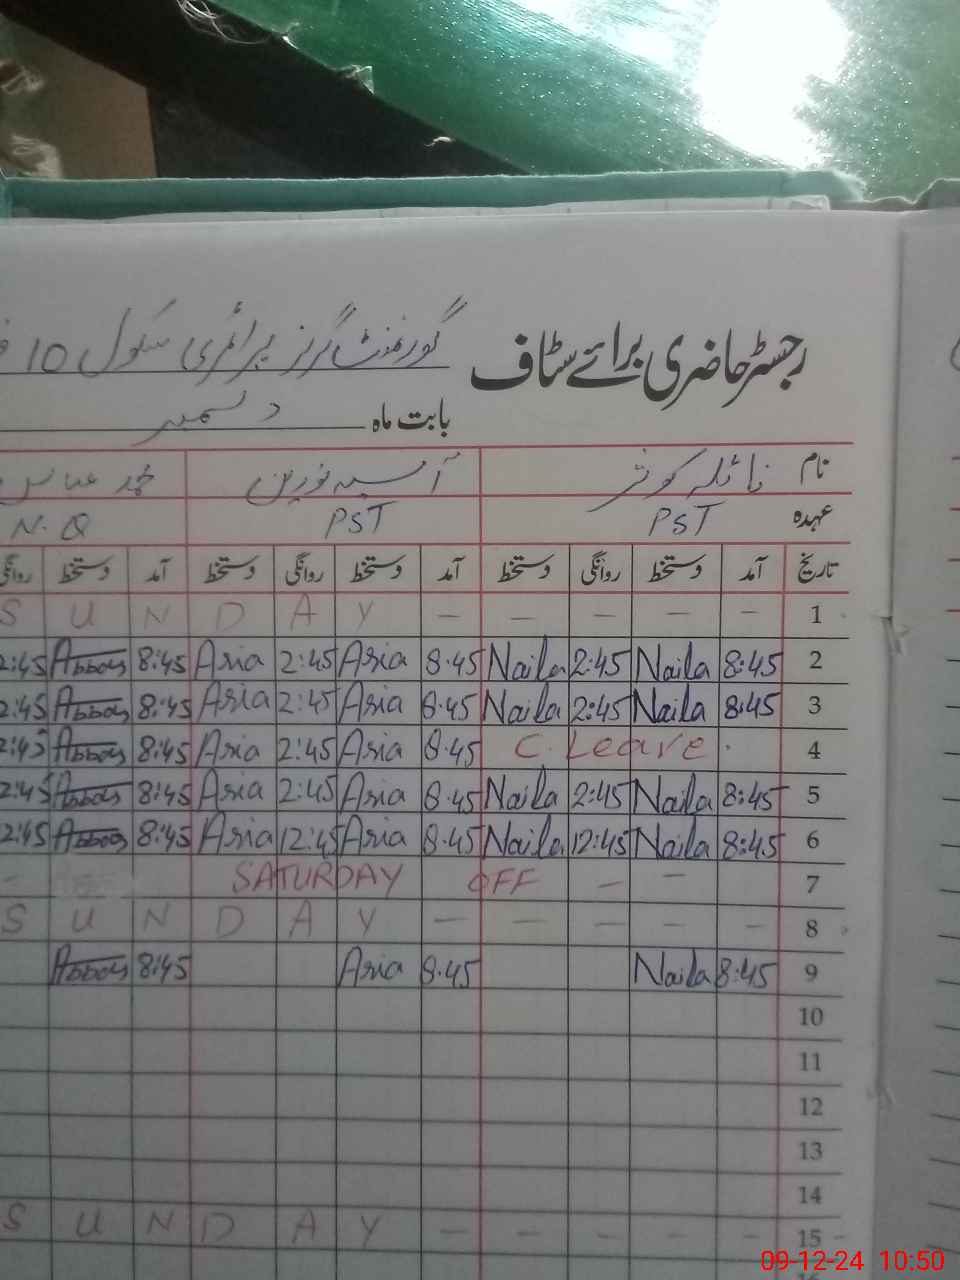 رجسٹر حاضری برائے سٹاف گورنمنٹ گرلز پرائمری سکول 10
بابت ماہ دسمبر
نام نائلہ کوثر آسیہ نورین محمد عباس
عہدہ PST PST N.Q
تاریخ آمد دستخط روانگی دستخط آمد دستخط روانگی دستخط آمد دستخط روانگی
1 S U N D A Y – – – – –
2 8:45 Naila 2:45 Naila 8:45 Asia 2:45 Asia 8:45 Abbas 2:45
3 8:45 Naila 2:45 Naila 8:45 Asia 2:45 Asia 8:45 Abbas 2:45
4 C. Leave. 8:45 Asia 2:45 Asia 8:45 Abbas 2:45
5 8:45 Naila 2:45 Naila 8:45 Asia 2:45 Asia 8:45 Abbas 2:45
6 8:45 Naila 12:45 Naila 8:45 Asia 12:45 Asia 8:45 Abbas 12:45
7 – SATURDAY OFF – –
8 S U N D A Y – – – – –
9 8:45 Naila 8:45 Asia 8:45 Abbas
10
11
12
13
14
15 S U N D A Y – – – – –
09-12-24 10:50